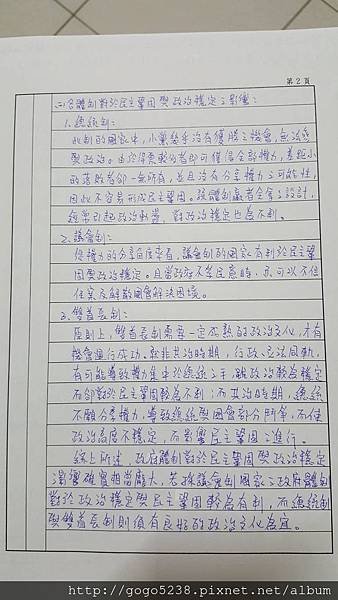 第2頁
(二)各體制對於民主鞏固與政治穩定之影響：
1.總統制：
此制的國家中，小黨幾乎沒有獲勝之機會，無法參
與政治。由於得票較多者即可獲得全部權力，差距小
的落敗者卻一無所有，並且沒有分享權力之可能性，
因此不容易形成民主鞏固。該體制贏者全拿之設計，
經常引起政治動盪，對政治穩定也為不利。
2.議會制：
從權力的分享角度來看，議會制的國家有利於民主鞏
固與政治穩定。且當政府不孚民意時，亦可以不信
任案及解散國會解決困境。
3.雙首長制：
原則上，雙首長制需要一定成熟的政治文化，才有
機會運行成功。就非共治時期，行政、立法同軌，
有可能導致權力集中於總統之手，雖政治較為穩定
而卻對於民主鞏固較為不利；而共治時期，總統
不願分享權力，導致總統與國會部分鬥爭，不僅
政治高層不穩定，而影響民主鞏固之進行。
綜上所述，政府體制對於民主鞏固與政治穩定
之影響確實相當龐大，若採議會制國家之政府體制
對於政治穩定與民主鞏固較為有利，而總統制
與雙首長制則須有良好的政治文化為宜。
http://gogo5238.pixnet.net/album